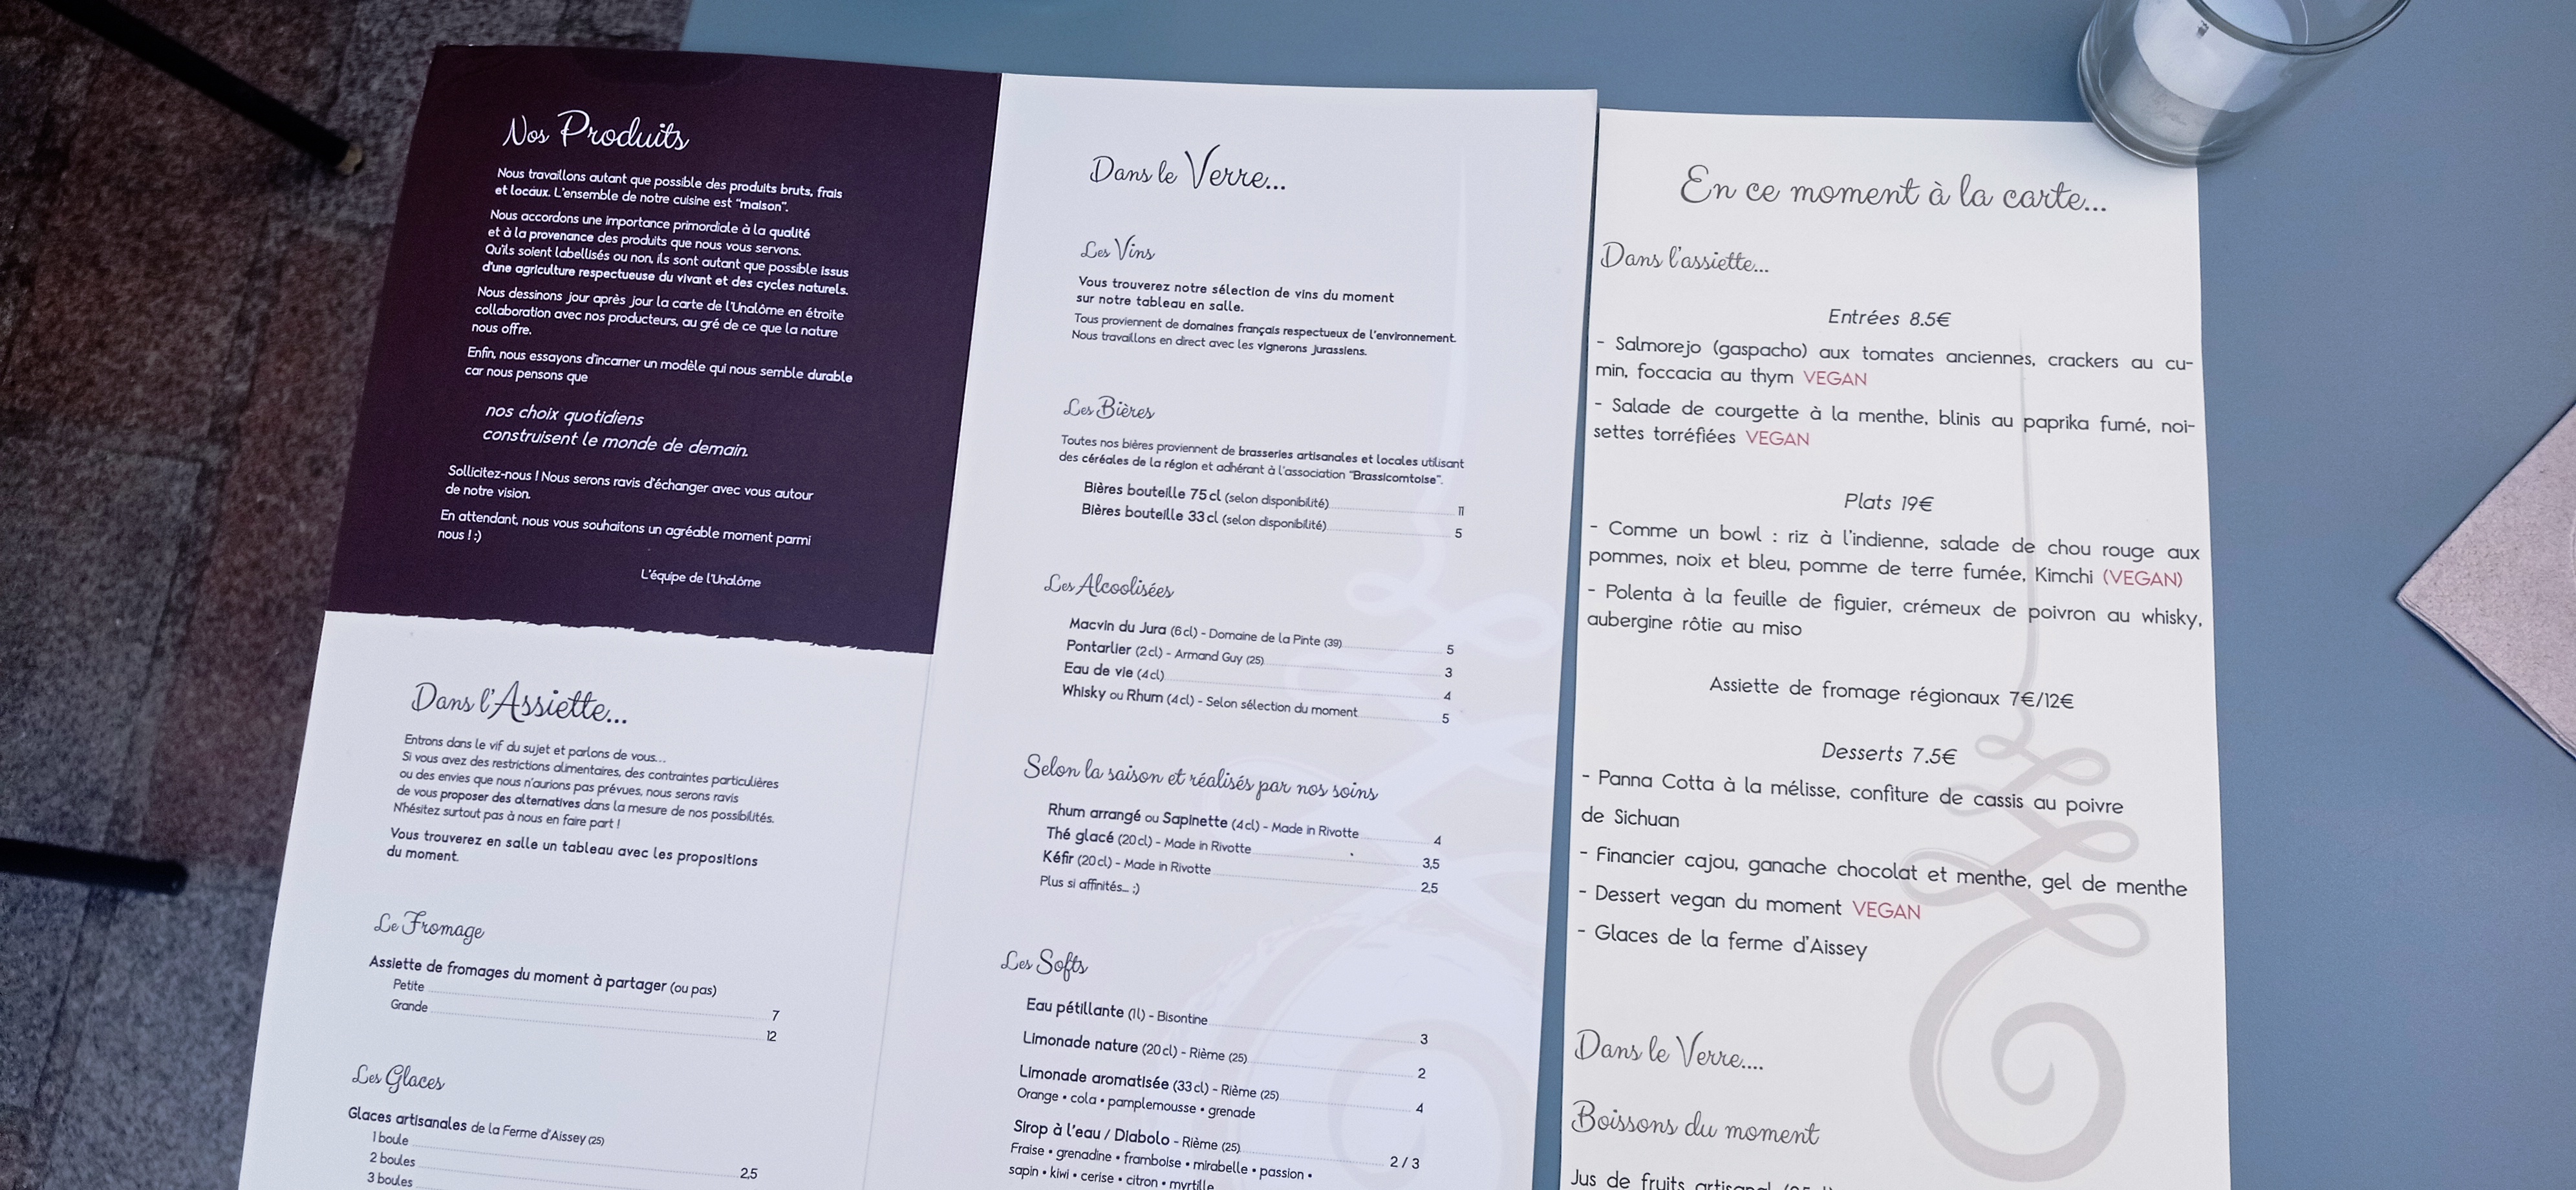 Nos Produits
Nous travaillons autant que possible des produits bruts, frais
et locaux. L'ensemble de notre cuisine est "maison".
Nous accordons une importance primordiale à la qualité
et à la provenance des produits que nous vous servons.
Qu'ils soient labellisés ou non, ils sont autant que possible issus
d'une agriculture respectueuse du vivant et des cycles naturels.
Nous dessinons jour après jour la carte de l'Unalôme en étroite
collaboration avec nos producteurs, au gré de ce que la nature
nous offre.
Enfin, nous essayons d'incarner un modèle qui nous semble durable
car nous pensons que
nos choix quotidiens
construisent le monde de demain.
Sollicitez-nous ! Nous serons ravis d'échanger avec vous autour
de notre vision.
En attendant, nous vous souhaitons un agréable moment parmi
nous ! :)
L'équipe de l'Unalôme
Dans l'Assiette...
Entrons dans le vif du sujet et parlons de vous...
Si vous avez des restrictions alimentaires, des contraintes particulières
ou des envies que nous n'aurions pas prévues, nous serons ravis
de vous proposer des alternatives dans la mesure de nos possibilités.
N'hésitez surtout pas à nous en faire part !
Vous trouverez en salle un tableau avec les propositions
du moment.
Le Fromage
Assiette de fromages du moment à partager (ou pas)
Petite 7
Grande 12
Les Glaces
Glaces artisanales de la Ferme d'Aissey (25)
1 boule 2,5
2 boules
3 boules
Dans le Verre...
Les Vins
Vous trouverez notre sélection de vins du moment
sur notre tableau en salle.
Tous proviennent de domaines français respectueux de l'environnement.
Nous travaillons en direct avec les vignerons jurassiens.
Les Bières
Toutes nos bières proviennent de brasseries artisanales et locales utilisant
des céréales de la région et adhérant à l'association "Brassicomtoise".
Bières bouteille 75 cl (selon disponibilité) 11
Bières bouteille 33 cl (selon disponibilité) 5
Les Alcoolisées
Macvin du Jura (6 cl) - Domaine de la Pinte (39) 5
Pontarlier (2 cl) - Armand Guy (25) 3
Eau de vie (4 cl) 4
Whisky ou Rhum (4 cl) - Selon sélection du moment 5
Selon la saison et réalisés par nos soins
Rhum arrangé ou Sapinette (4 cl) - Made in Rivotte 4
Thé glacé (20 cl) - Made in Rivotte 3,5
Kéfir (20 cl) - Made in Rivotte 2,5
Plus si affinités... ;)
Les Softs
Eau pétillante (1l) - Bisontine 3
Limonade nature (20 cl) - Rième (25) 2
Limonade aromatisée (33 cl) - Rième (25) 4
Orange • cola • pamplemousse • grenade
Sirop à l'eau / Diabolo - Rième (25) 2 / 3
Fraise • grenadine • framboise • mirabelle • passion •
sapin • kiwi • cerise • citron • myrtille
En ce moment à la carte...
Dans l'assiette...
Entrées 8.5€
- Salmorejo (gaspacho) aux tomates anciennes, crackers au cu-
min, foccacia au thym VEGAN
- Salade de courgette à la menthe, blinis au paprika fumé, noi-
settes torréfiées VEGAN
Plats 19€
- Comme un bowl : riz à l'indienne, salade de chou rouge aux
pommes, noix et bleu, pomme de terre fumée, Kimchi (VEGAN)
- Polenta à la feuille de figuier, crémeux de poivron au whisky,
aubergine rôtie au miso
Assiette de fromage régionaux 7€/12€
Desserts 7.5€
- Panna Cotta à la mélisse, confiture de cassis au poivre
de Sichuan
- Financier cajou, ganache chocolat et menthe, gel de menthe
- Dessert vegan du moment VEGAN
- Glaces de la ferme d'Aissey
Dans le Verre....
Boissons du moment
Jus de fruits